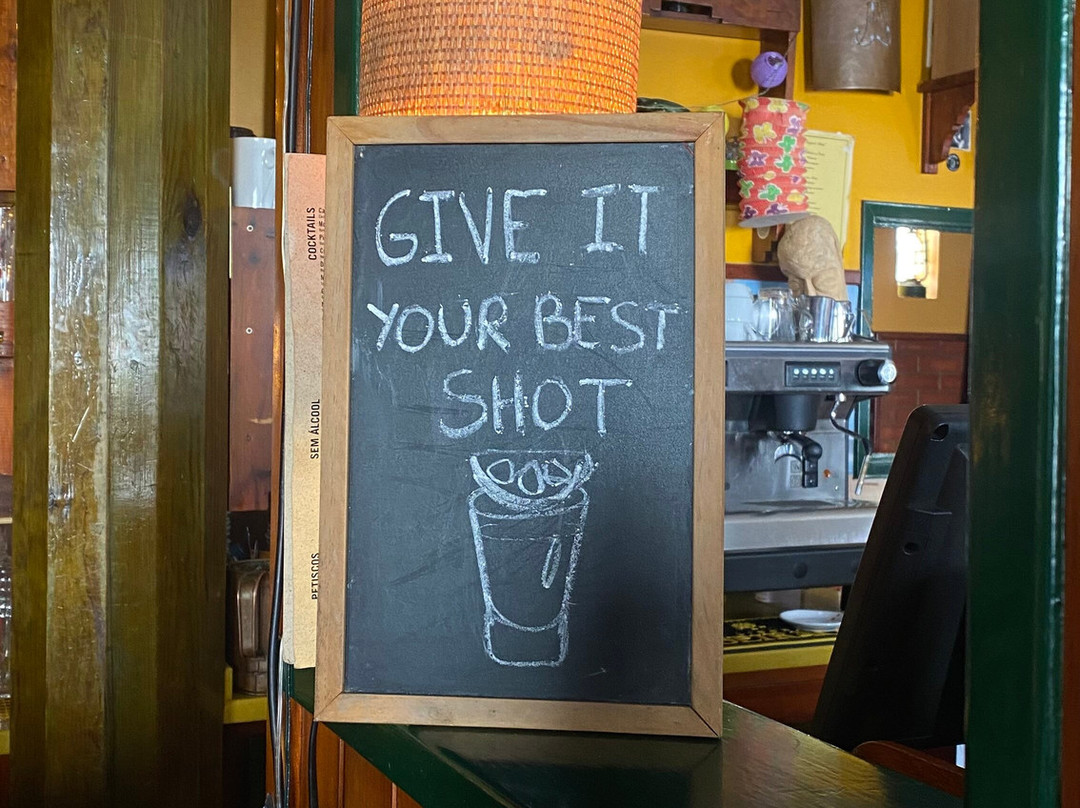 GIVE IT
YOUR BEST
SHOT
COCKTAILS
SEM ÁLCOOL
PETISCOS